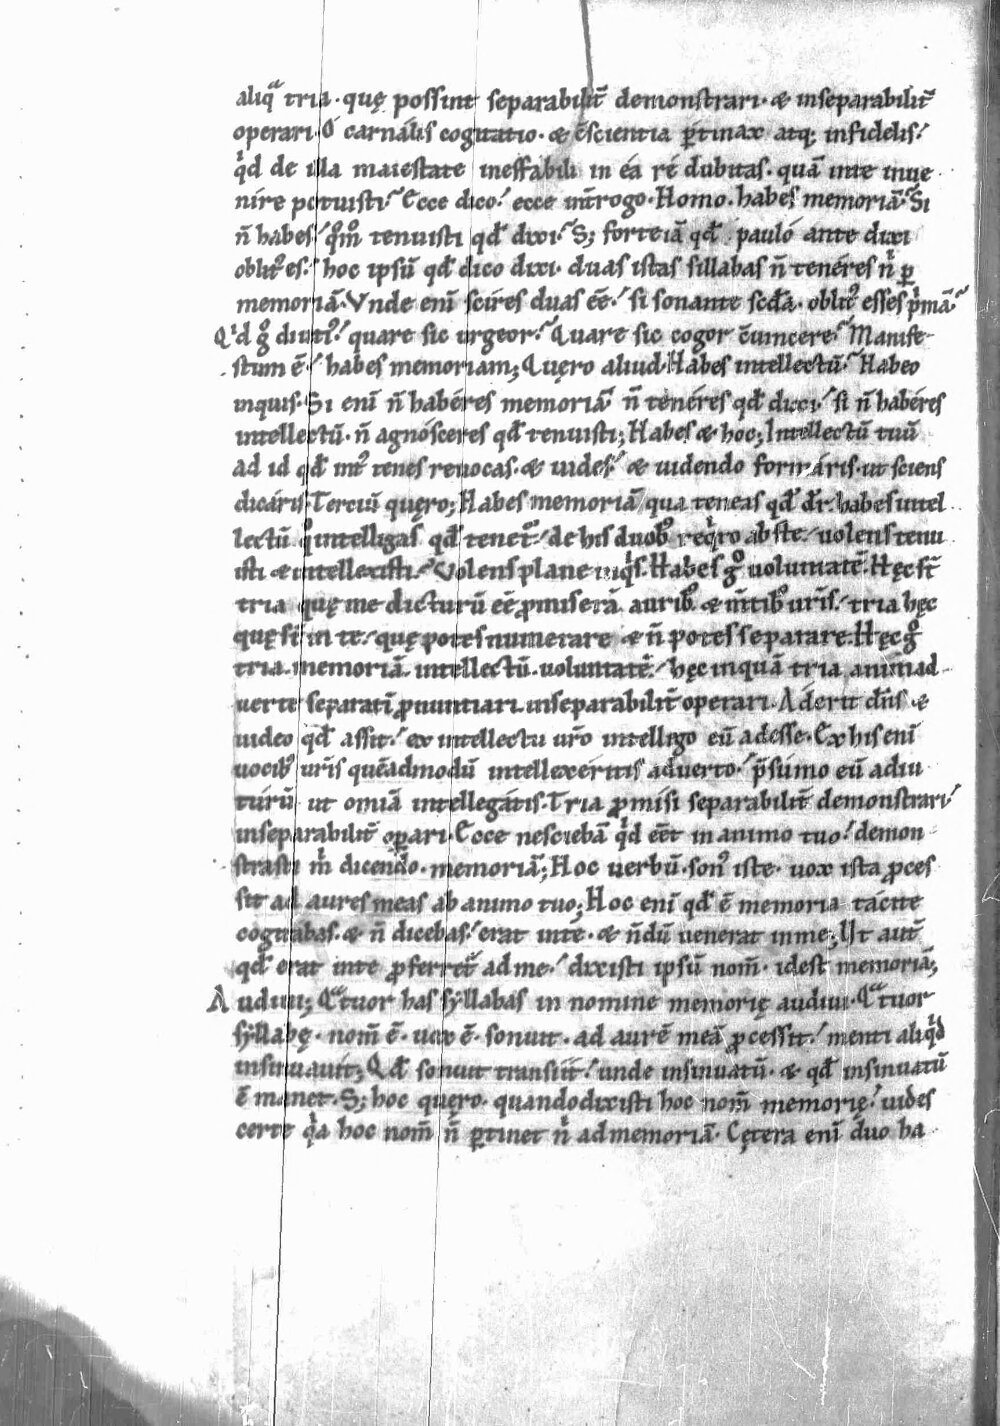 aliqͣ tria · quę possint separabilit̄ demonstrari · & inseparabilit̄
operari · O carnális cogitatio · & c̄scientia ꝑtinax atq; infidelis!
qͥd de illa maiestate ineffabili in éa ré dubitas · quā inte inue
níre potuisti? Ecce dico! ecce int̄rogo · Homo · habes memoriā? Si
n̄ habes! qͦmͦ tenuisti qd̄ dixi? S; forte iā qd̄ pauló ante dixi
oblitꝰ es! hoc ipsū qd̄ dico dixi · duas istas sillabas n̄ tenéres nͥ ꝑ
memoriā · Vnde enī scires duas eē! si sonante scd̄a · oblitꝰ esses pͥmā?
Qͥd gͦ diutiꝰ! quare sic urgeor? Quare sic cogor c̄uincere? Manife-
stum ē! habes memoriam; Quęro aliud · Habes intellectū? Habeo
inquis · Si enī n̄ habéres memoriā! n̄ tenéres qd̄ dixi! si n̄ habéres
intellectū · n̄ agnósceres qd̄ tenuisti; Habes & hoc; Intellectū tuū
ad id qd̄ intꝰ tenes reuocas · & uides! & uidendo formáris · ut sciens
dicáris · Terciū quęro; Habes memoriā qua teneas qd̄ dr̄ · habes intel
lectū qͦ intelligas qd̄ tenetͬ! de his duobꝰ reqͥro abste! uolens tenu
isti & intellexisti? Volens plane inqͥs · Habes gͦ uoluntatē · Hęc st̄
tria quę me dicturū eē ꝓmiserā auribꝰ & m̄tibꝰ ur̄is! tria hęc
quę sī in te! quę potes numerare & n̄ potes separare · Hęc gͦ
tria · memoriā · intellectū · uoluntatē! hęc inquā tria animad-
uerte separatī ꝓnuntiari · inseparabilit̄ operari · Aderit dn̄s · &
uideo qd̄ assit! ex intellectu ur̄o intelligo eū adesse · Ex his enī
uocibꝰ ur̄is quēadmodū intellexéritis aduerto! p̄súmo eū adiu
túrū ut omīa intellegátis · Tria ꝓmísi separabilit̄ demonstrari!
inseparabilit̄ oꝑari · Ecce nesciebā qͥd eēt in animo tuo! demon-
strasti mͥ dicendo · memoriā; Hoc uerbū · sonꝰ iste · uox ista ꝓces
sit ad aures meas ab animo tuo; Hoc enī qd̄ ē memoria tácite
cogitabas · & n̄ dicebas! erat inte · & n̄dū uenerat inme; Ut aut̄
qd̄ erat inte ꝓferretͬ ad me! dixisti ipsū nom̄ · idest memoriā;
Audiui; Qͣtuor has syllabas in nomine memorię audiui · Qͣtuor
syllabę · nom̄ ē · uox ē · sonuit · ad aurē meā ꝓcessit! menti aliqͥd
insinuauit; Qd̄ sonuit transiit! unde insinuatū · & qd̄ insinuatū
ē manet · S; hoc quęro · quando dixisti hoc nom̄ memorię! uides
certe qͥa hoc nom̄ n̄ ꝑtinet nͥ ad memoriā · Cętera enī duo ha